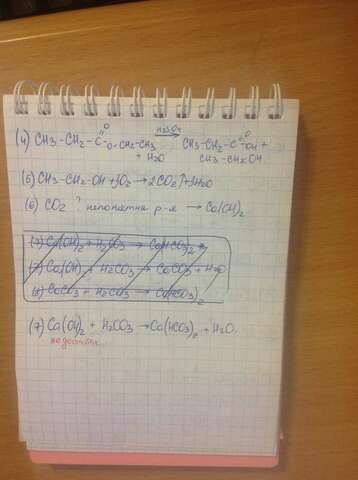 (4) CH3-CH2-C=O-O-CH2-CH3 + H2O H2SO4 → CH3-CH2-C=O-OH + CH3-CH2OH
(5) CH3-CH2-OH + 3O2 → 2CO2↑ + 3H2O
(6) CO2 ? непонятна р-я → Ca(OH)2
(7) Ca(OH)2 + H2CO3 → Ca(HCO3)2
(7) Ca(OH)2 + H2CO3 → CaCO3 + H2O
(8) CaCO3 + H2CO3 → Ca(HCO3)2
(7) Ca(OH)2 + H2CO3 → Ca(HCO3)2 + H2O.